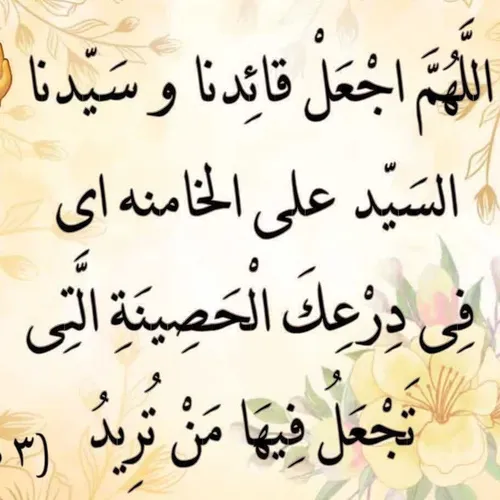 اللَّهُمَّ اجْعَلْ قائِدنا و سَیّدنا
السَیّد علی الخامنه ای
فِی دِرْعِكَ الْحَصِینَةِ الَّتِی
تَجْعَلُ فِیهَا مَنْ تُرِیدُ (۳